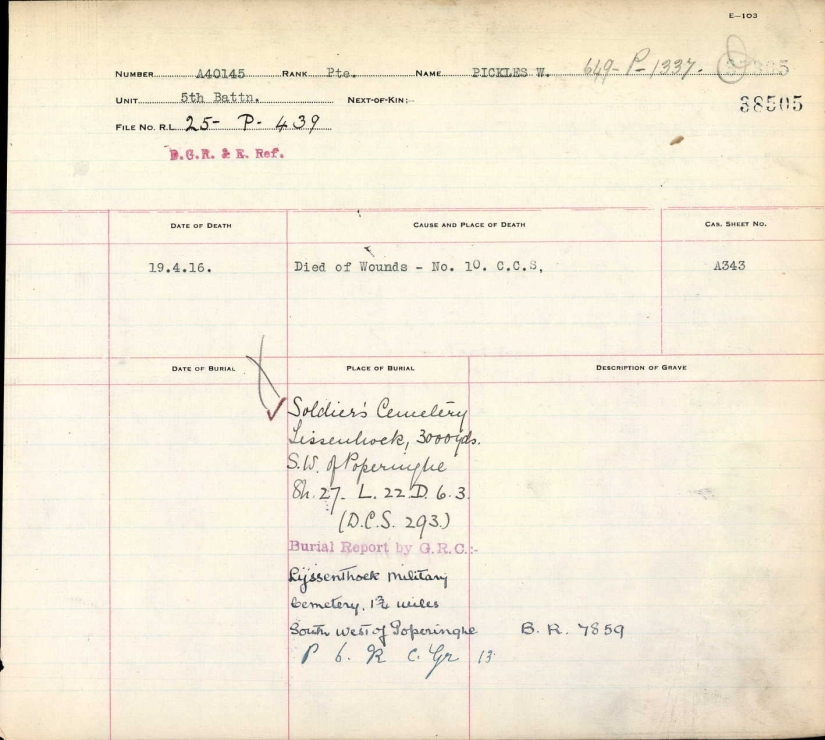 E—103
NUMBER A40145 RANK Pte. NAME PICKLES W. 649-P-1337.
38505
UNIT 5th Battn. NEXT-OF-KIN:-
FILE NO. R.L. 25- P- 439
D.G.R. & E. Ref.
DATE OF DEATH CAUSE AND PLACE OF DEATH CAS. SHEET NO.
19.4.16. Died of Wounds - No. 10. C.C.S, A343
DATE OF BURIAL PLACE OF BURIAL DESCRIPTION OF GRAVE
Soldier's Cemetery
Lissenhock, 3000yds.
S.W. of Poperinghe
Sh. 27- L. 22.D. 6.3.
(D.C.S. 293.)
Burial Report by G.R.C.:-
Lijssenthoek Military
Cemetery, 1¾ miles
South West of Poperinghe B.R. 7859
P 6. R C. Gr 13